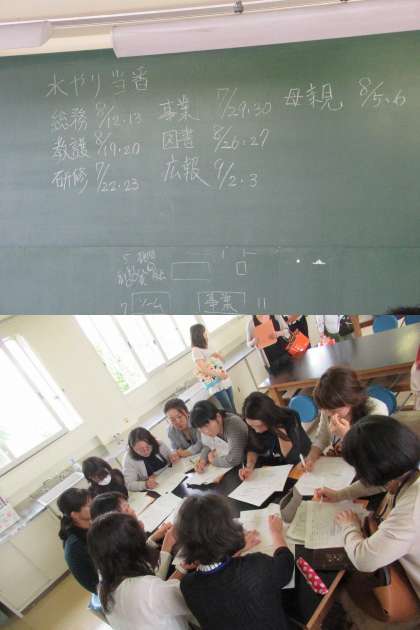 水やり当番
総務 8/12.13 事業 7/29.30 母親 8/5.6
教護 8/19.20 図書 8/26.27
研修 7/22.23 広報 9/2.3
事業